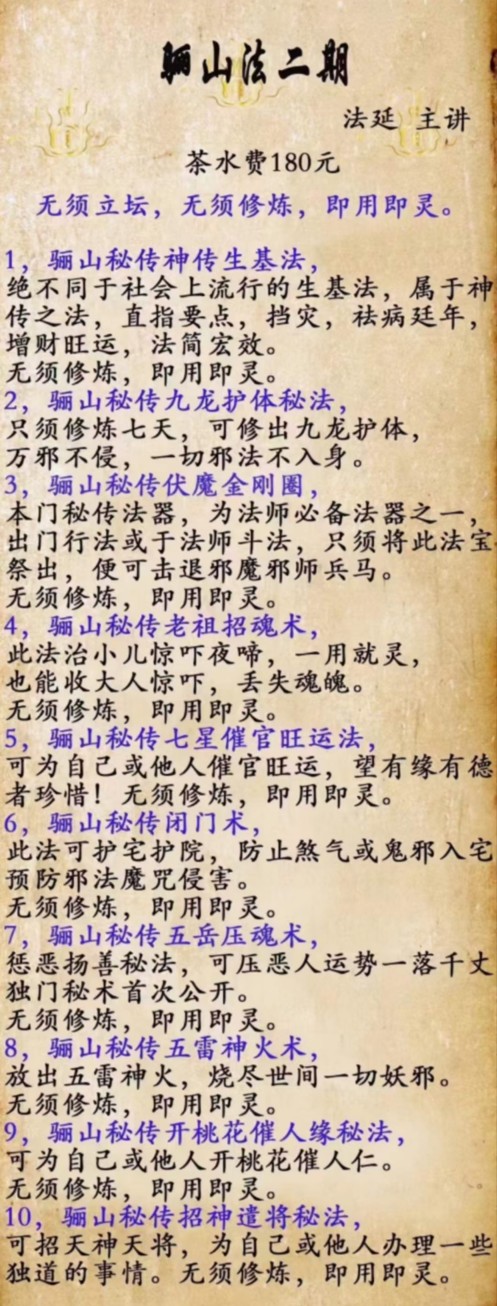 骊山法二期
法延 主讲
茶水费180元
无须立坛，无须修炼，即用即灵。
1，骊山秘传神传生基法，
绝不同于社会上流行的生基法，属于神
传之法，直指要点，挡灾，祛病廷年，
增财旺运，法简宏效。
无须修炼，即用即灵。
2，骊山秘传九龙护体秘法，
只须修炼七天，可修出九龙护体，
万邪不侵，一切邪法不入身。
3，骊山秘传伏魔金刚圈，
本门秘传法器，为法师必备法器之一，
出门行法或于法师斗法，只须将此法宝
祭出，便可击退邪魔邪师兵马。
无须修炼，即用即灵。
4，骊山秘传老祖招魂术，
此法治小儿惊吓夜啼，一用就灵，
也能收大人惊吓，丢失魂魄。
无须修炼，即用即灵。
5，骊山秘传七星催官旺运法，
可为自己或他人催官旺运，望有缘有德
者珍惜！无须修炼，即用即灵。
6，骊山秘传闭门术，
此法可护宅护院，防止煞气或鬼邪入宅
预防邪法魔咒侵害。
无须修炼，即用即灵。
7，骊山秘传五岳压魂术，
惩恶扬善秘法，可压恶人运势一落千丈
独门秘术首次公开。
无须修炼，即用即灵。
8，骊山秘传五雷神火术，
放出五雷神火，烧尽世间一切妖邪。
无须修炼，即用即灵。
9，骊山秘传开桃花催人缘秘法，
可为自己或他人开桃花催人仁。
无须修炼，即用即灵。
10，骊山秘传招神遣将秘法，
可招天神天将，为自己或他人办理一些
独道的事情。无须修炼，即用即灵。